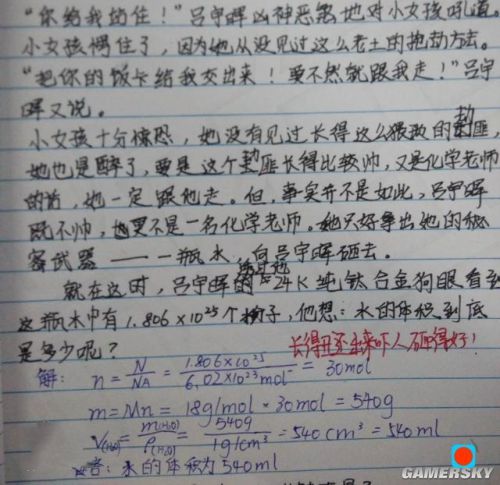 “你给我站住！”吕宇晖凶神恶煞地对小女孩吼道。
小女孩愣住了，因为她从没见过这么老土的抢劫方法。
“把你的饭卡给我交出来！要不然就跟我走！”吕宇
晖又说。
小女孩十分惊恐，她没有见过长得这么猥琐的劫匪
她也是醉了，要是这个劫匪长得比较帅，又是化学老师
的话，她一定跟他走。但，事实并不是如此，吕宇晖
既不帅，也更不是一名化学老师。她只好拿出她的秘
密武器——一瓶水，向吕宇晖砸去。
就在这时，吕宇晖的24K纯钛合金狗眼看到
这瓶水中有1.806×10²⁵个分子，他想：水的体积到底
是多少呢？
长得丑还出来吓人砸得好！
解：n=N/NA=1.806×10²⁵/6.02×10²³mol⁻=30mol
m=Mn=18g/mol×30mol=540g
V(H₂O)=m(H₂O)/ρ(H₂O)=540g/1g/cm³=540cm³=540ml
答：水的体积为540ml
GAMERSKY